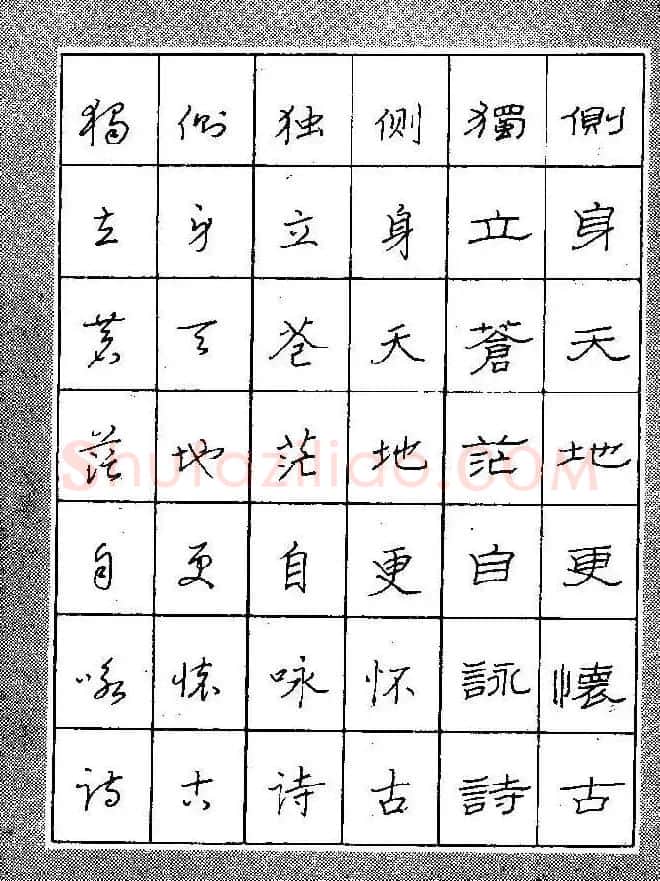 側身天地更懷古
獨立蒼茫自詠詩
侧身天地更怀古
独立苍茫自咏诗
側身天地更懷古
獨立蒼茫自咏诗
Shufaziliao.COM